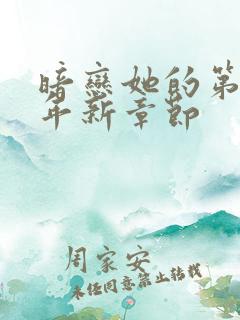 暗恋她的第
年新章节
周家安
未经同意禁止转载